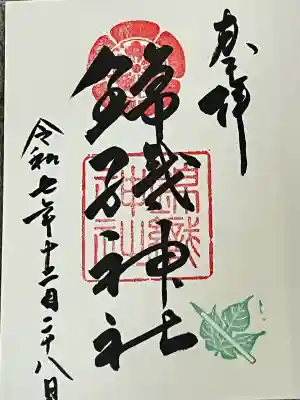 奉拝
錦織神社
錦織
神社
令和七年十二月二十八日